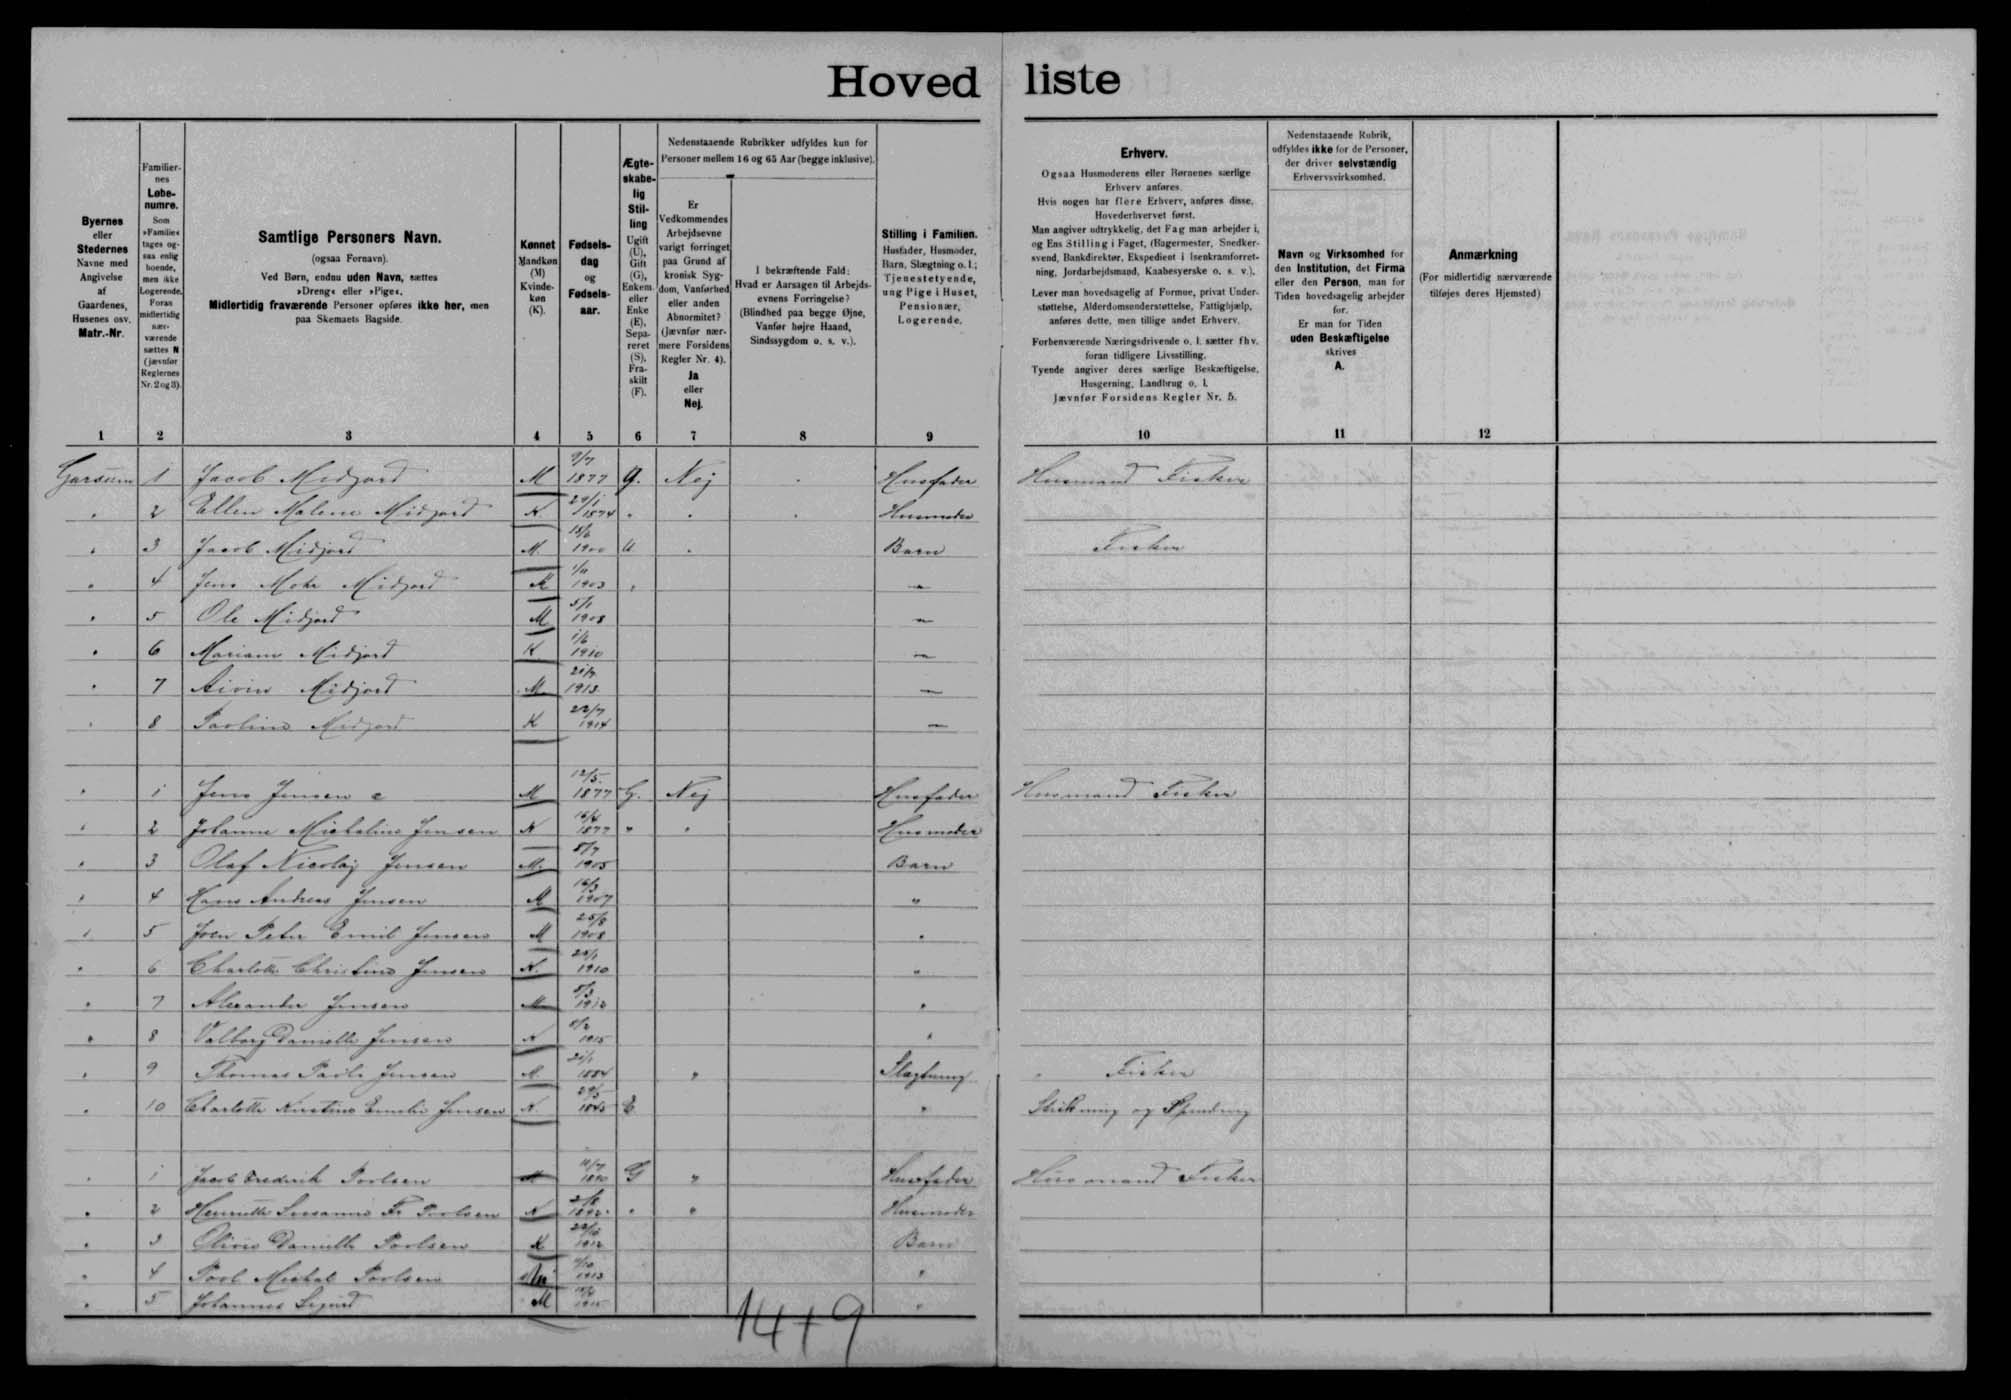 Hoved liste
Byernes eller Stedernes Navne med Angivelse af Gaardenes, Husenes osv. Matr.-Nr.
Familiernes Løbenumre. Som »Familie« tages ogsaa enlig boende, men ikke Logerende. Foran midlertidig nærværende sættes N (jævnfør Reglernes Nr. 2 og 3).
Samtlige Personers Navn.
(ogsaa Fornavn).
Ved Børn, endnu uden Navn, sættes »Dreng« eller »Pige«.
Midlertidig fraværende Personer opføres ikke her, men paa Skemaets Bagside.
Kønnet Mandkøn (M) Kvindekøn (K).
Fødselsdag og Fødselsaar.
Ægteskabelig Stilling Ugift (U), Gift (G), Enkemand eller Enke (E), Separeret (S), Fraskilt (F).
Nedenstaaende Rubrikker udfyldes kun for Personer mellem 16 og 65 Aar (begge inklusive).
Er Vedkommendes Arbejdsevne varigt forringet paa Grund af kronisk Sygdom, Vanførhed eller anden Abnormitet? (Jævnfør nærmere Forsidens Regler Nr. 4). Ja eller Nej.
I bekræftende Fald: Hvad er Aarsagen til Arbejdsevnens Forringelse? (Blindhed paa begge Øjne, Vanfør højre Haand, Sindssygdom o. s. v.).
Stilling i Familien. Husfader, Husmoder, Barn, Slægtning o. l.; Tjenestetyende, ung Pige i Huset, Pensionær, Logerende.
Erhverv.
Ogsaa Husmoderens eller Børnenes særlige Erhverv anføres.
Hvis nogen har flere Erhverv, anføres disse, Hovederhvervet først.
Man angiver udtrykkelig, det Fag man arbejder i, og Ens Stilling i Faget, (Bagermester, Snedkersvend, Bankdirektør, Ekspedient i Isenkramforretning, Jordarbejdsmand, Kaabesyerske o. s. v.).
Lever man hovedsagelig af Formue, privat Understøttelse, Alderdomsunderstøttelse, Fattighjælp, anføres dette, men tillige andet Erhverv.
Forbenværende Næringsdrivende o. l. sætter fhv. foran tidligere Livsstilling.
Tyende angiver deres særlige Beskæftigelse, Husgerning, Landbrug o. l.
Jævnfør Forsidens Regler Nr. 5.
Nedenstaaende Rubrik, udfyldes ikke for de Personer, der driver selvstændig Erhvervsvirksomhed.
Navn og Virksomhed for den Institution, det Firma eller den Person, man for Tiden hovedsagelig arbejder for.
Er man for Tiden uden Beskæftigelse skrives A.
Anmærkning
(For midlertidig nærværende tilføjes deres Hjemsted)
1 2 3 4 5 6 7 8 9 10 11 12
1 Jacob Midjord M 9/7 1877 G. Nej Husfader Husmand Fisker
" 2 Ellen Malene Midjord K. 1874 " " Husmoder
" 3 Jacob Midjord M. 1900 U " Barn Fisker
" 4 Jens Mohr Midjord M 1903 "
" 5 Ole Midjord M 5/1 1908
" 6 Mariane Midjord K 1/6 1910
" 7 Midjord M 1913
" 8 Paoline Midjord K 22/7 1914
" 1 Jens Jensen M 12/5 1877 G. Nej Husfader Husmand Fisker
" 2 Johanne Michaline Jensen K 1877 " " Husmoder
" 3 Olaf Nicolaj Jensen M. 8/7 1905 Barn
" 4 Hans Andreas Jensen M 1907 "
" 5 Joen Peter Emil Jensen M 1908 "
" 6 Charlotte Christine Jensen K. 1910 "
" 7 Alexander Jensen M "
" 8 Valborg Danielle Jensen K 1915 "
" 9 Thomas Jensen M. 21/1 1884 " Slægtning Fisker
" 10 Charlotte Kirstine Emilie Jensen K. E. " Strikning og Spinding
" 1 Jacob Frederik Poolsen M 11/7 1890 G " Husfader Husmand Fisker
" 2 Henriette Susanne Fr Poolsen K 1892 " " Husmoder
" 3 Danielle Poolsen K 1912 Barn
" 4 Pool Michal Poolsen M 1913 "
" 5 Johannes Sigurd M 1915 "
14+9